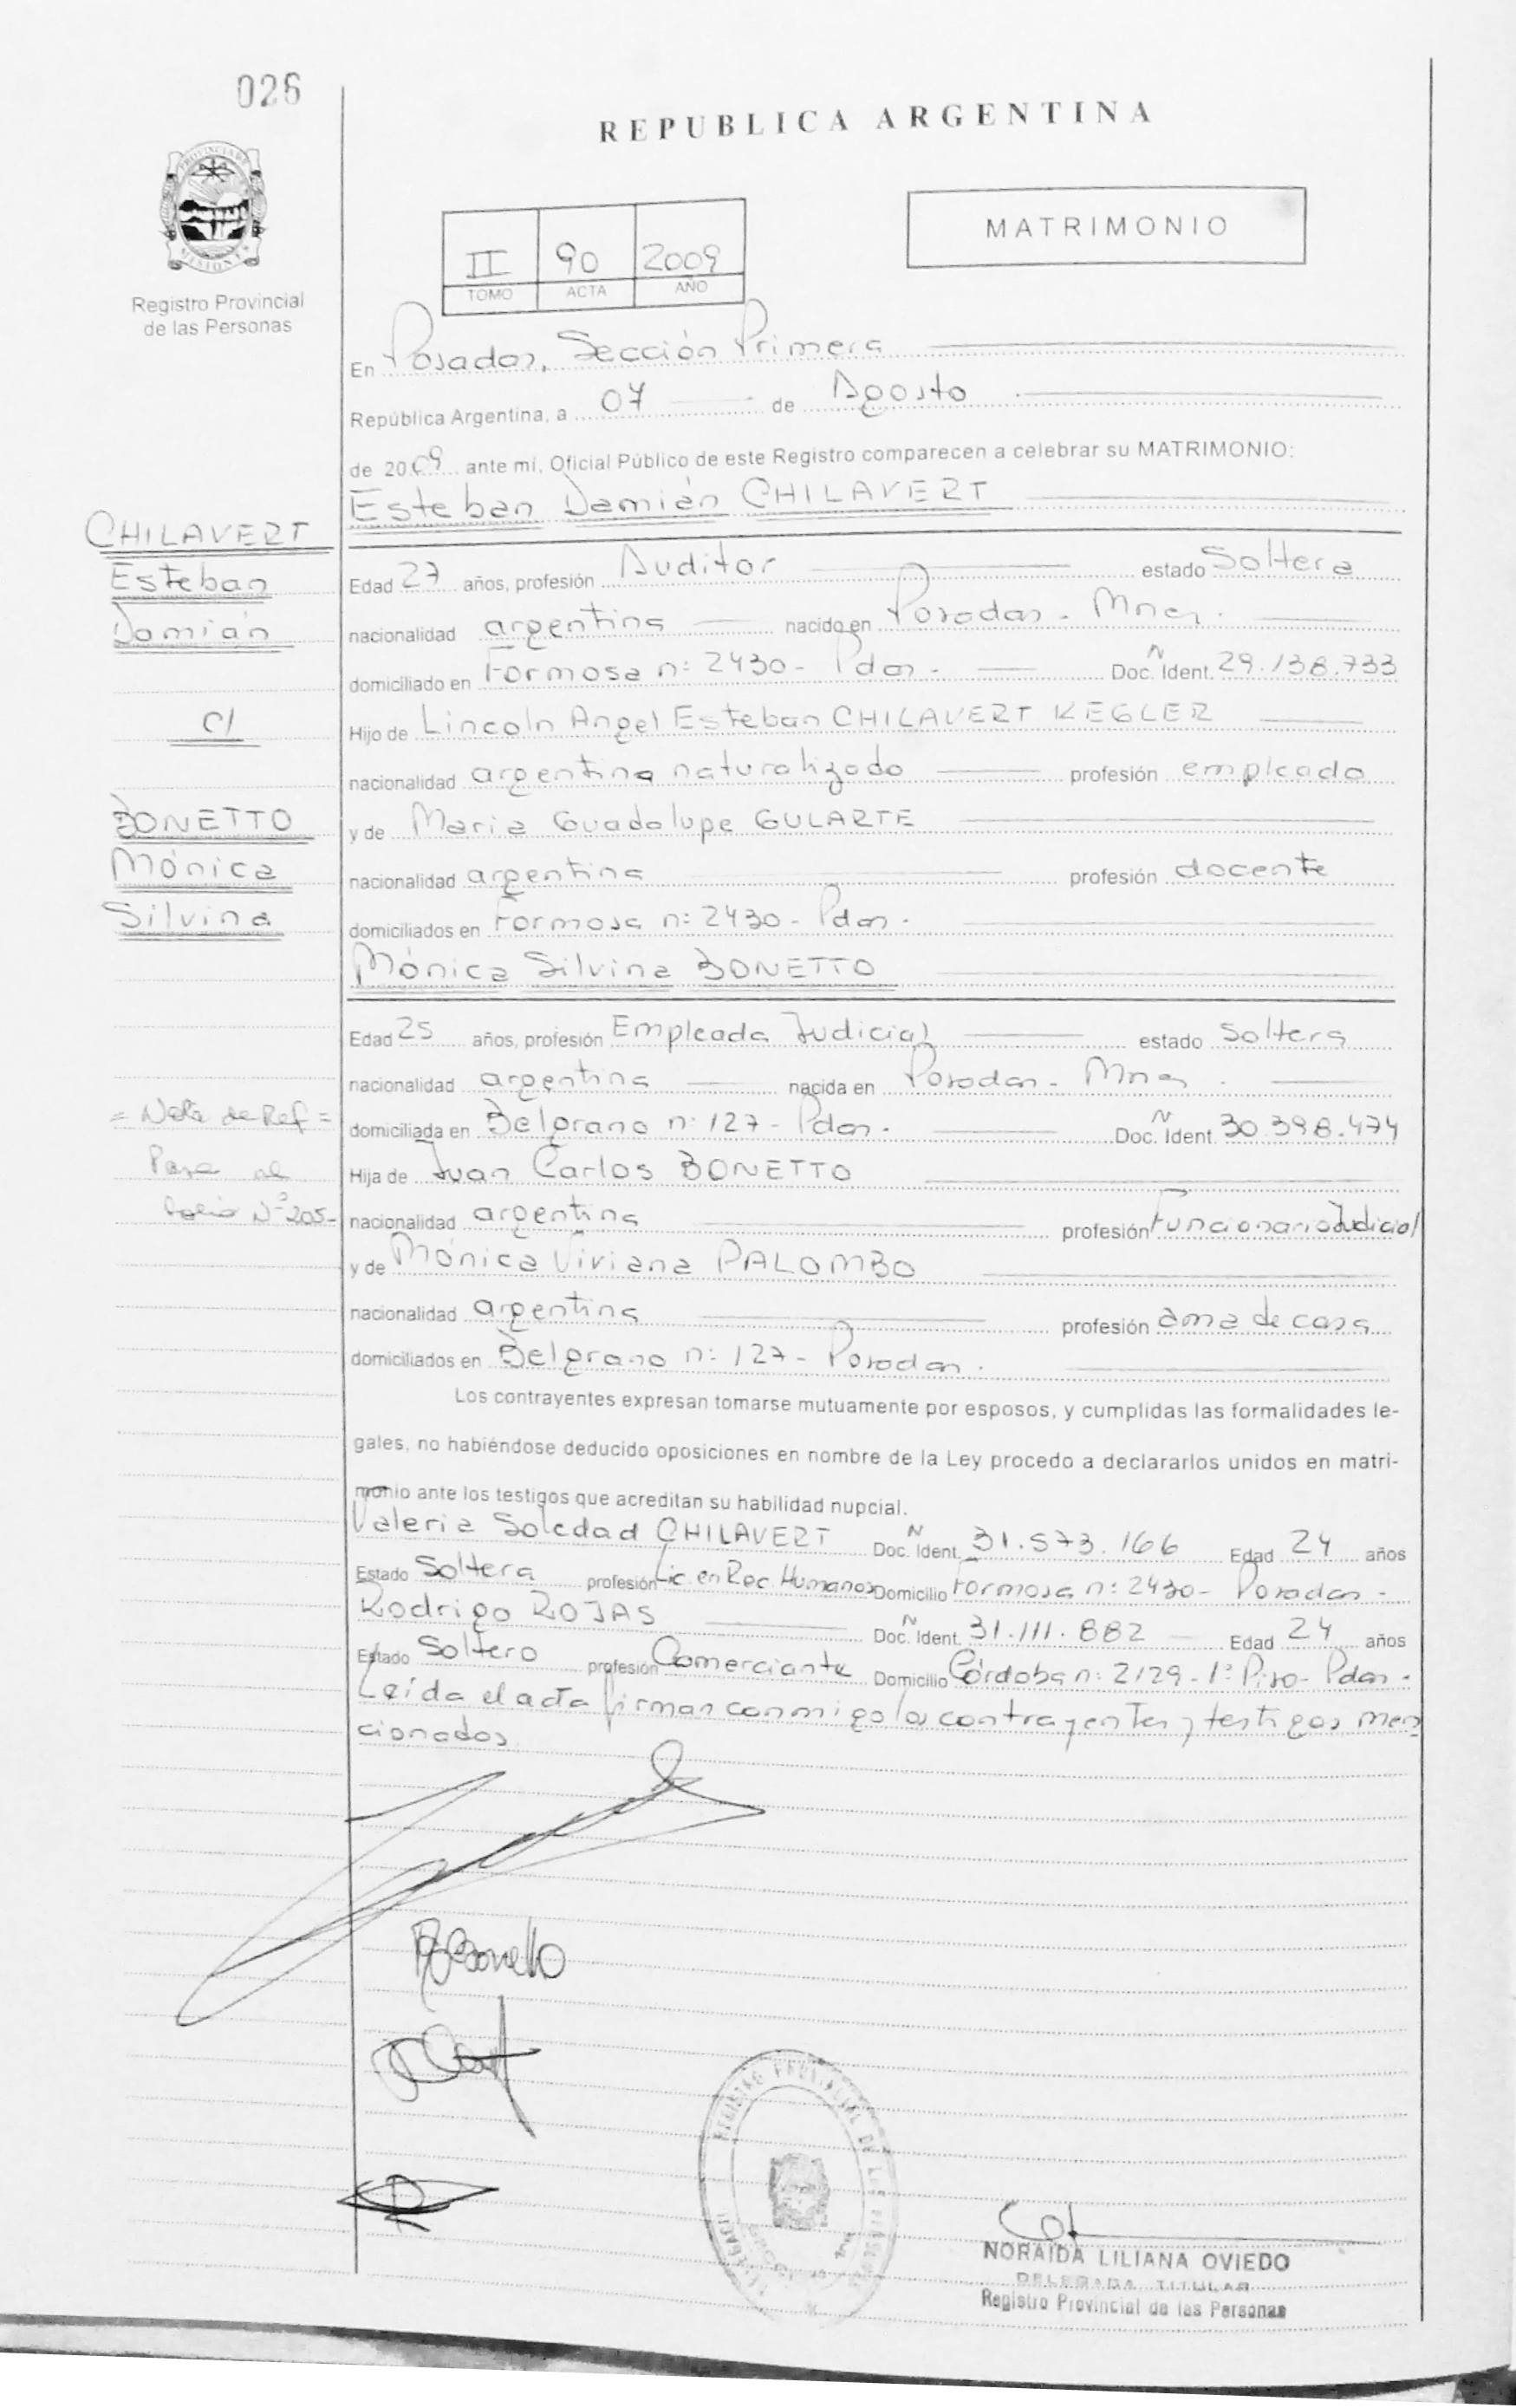 026
REPUBLICA ARGENTINA
PROVINCIA DE
MISIONES
Registro Provincial
de las Personas
II 90 2009
TOMO ACTA AÑO
MATRIMONIO
En Posadas, Sección Primera
República Argentina, a 07 de Agosto
de 2009 ante mí, Oficial Público de este Registro comparecen a celebrar su MATRIMONIO:
Esteban Damián CHILAVERT
CHILAVERT
Esteban
Damián
c/
BONETTO
Mónica
Silvina
Edad 27 años, profesión Auditor estado Soltera
nacionalidad argentina nacido en Posadas - Mnes.
domiciliado en Formosa n: 2430 - Pdas. N Doc. Ident. 29.138.733
Hijo de Lincoln Angel Esteban CHILAVERT KEGLER
nacionalidad argentino naturalizado profesión empleado
y de Maria Guadalupe GULARTE
nacionalidad argentina profesión docente
domiciliados en Formosa n: 2430 - Pdas.
Mónica Silvina BONETTO
Edad 25 años, profesión Empleada Judicial estado Soltera
nacionalidad argentina nacida en Posadas - Mnes.
domiciliada en Belgrano n: 127 - Pdas. N Doc. Ident. 30.398.474
Hija de Juan Carlos BONETTO
nacionalidad argentina profesión Funcionario Judicial
y de Mónica Viviana PALOMBO
nacionalidad argentina profesión ama de casa
domiciliados en Belgrano n: 127 - Posadas.
= Nota de Ref =
Pasa al
folio Nº 205-
Los contrayentes expresan tomarse mutuamente por esposos, y cumplidas las formalidades le-
gales, no habiéndose deducido oposiciones en nombre de la Ley procedo a declararlos unidos en matri-
monio ante los testigos que acreditan su habilidad nupcial.
Valeria Soledad CHILAVERT N Doc. Ident. 31.573.166 Edad 24 años
Estado Soltera profesión Lic. en Rec. Humanos Domicilio Formosa n: 2430 - Posadas -
Rodrigo ROJAS N Doc. Ident. 31.111.882 Edad 24 años
Estado Soltero profesión Comerciante Domicilio Córdoba n: 2129 - 1º Piso - Pdas.
Leída el acta firman conmigo los contrayentes y testigos men
cionados
REGISTRO PROVINCIAL DE LAS PERSONAS
NORAIDA LILIANA OVIEDO
DELEGADA TITULAR
Registro Provincial de las Personas